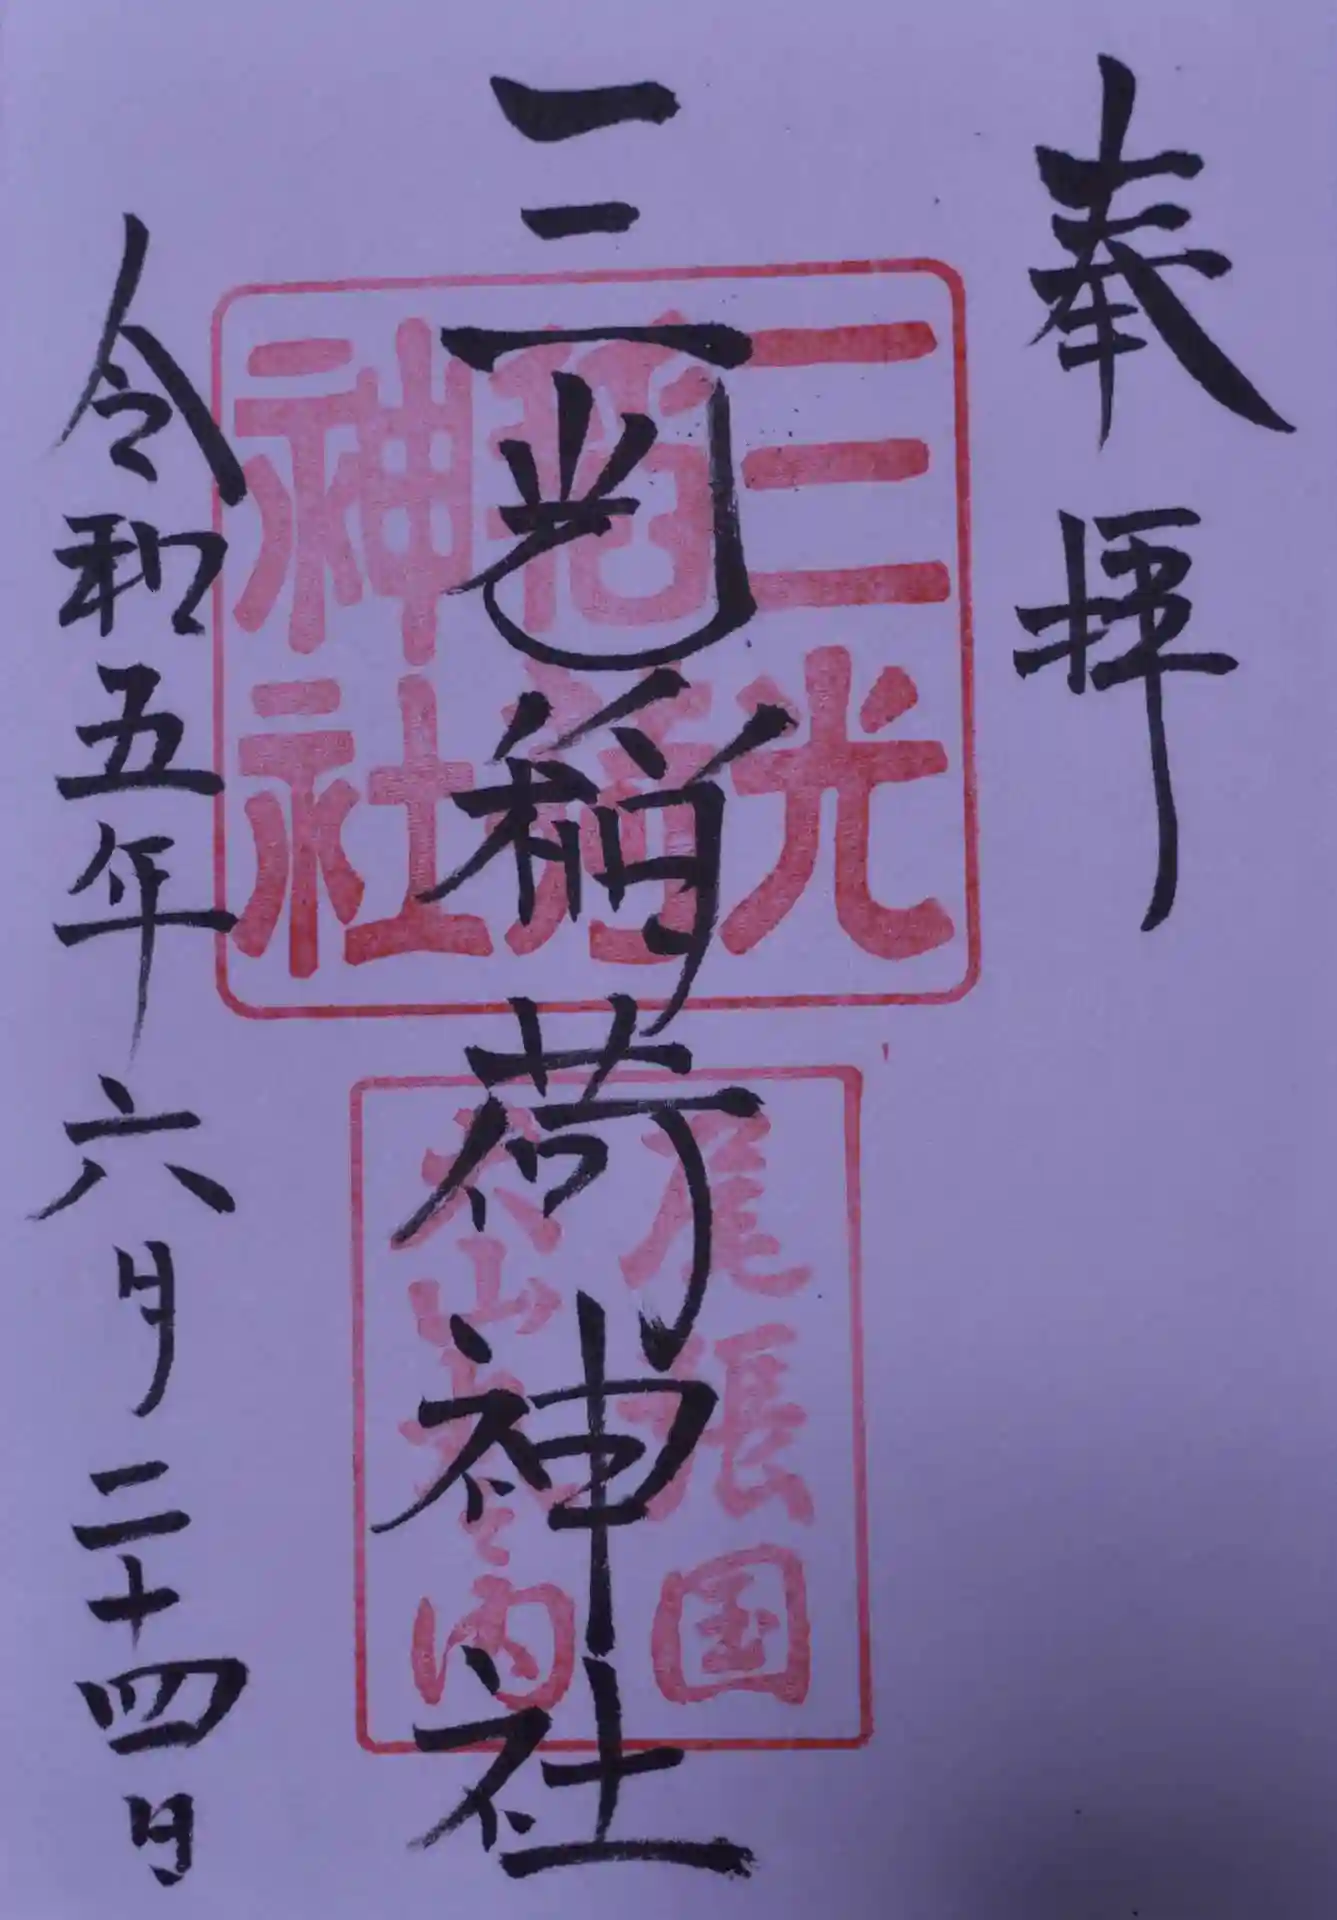 奉拝
三光稲荷神社
令和五年六月二十四日
三光
稲荷
神社
尾張国
犬山丸之内